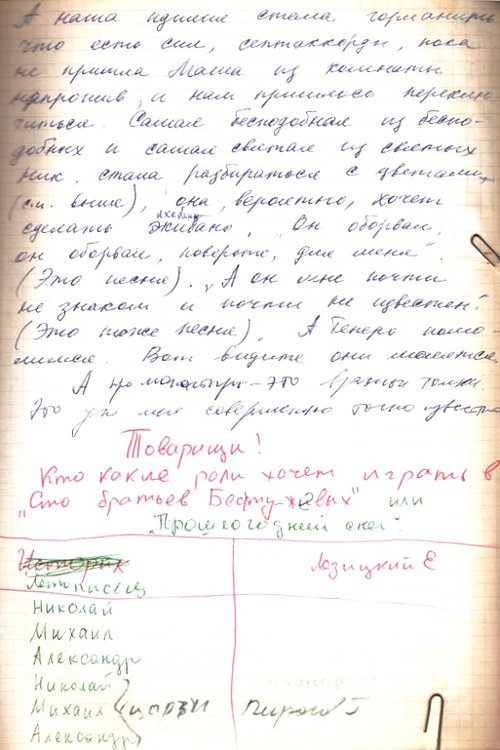 А наша идише стала горманить
что есть сил, септаккорды, пока
не пришла Маша из комнаты
напротив, и нам пришлось переклю-
читься. Самая бесподобная из беспо-
добных и самая святая из святых
Ник, стала разбираться с цветами
(см. выше), она, вероятно, хочет
икебану
сделать экибано, „Он оборвал,
он оборвал, поверьте, для меня".
(Это песня). „А он мне почти
не знаком и почти не известен"
(Это тоже песня). А теперь помо-
лимся. Вот видите они молятся.
А про монастырь – это вражьи толки
Это уж мне совершенно точно известно
Товарищи!
Кто какие роли хочет играть в
„Сто братьев Бестужевых" или
„Прошлогодний снег".
Историк
Лозицкий Е
Летописец
Николай
Михаил
Александр
Николай
Михаил
цари
Пирогов Г
Александр